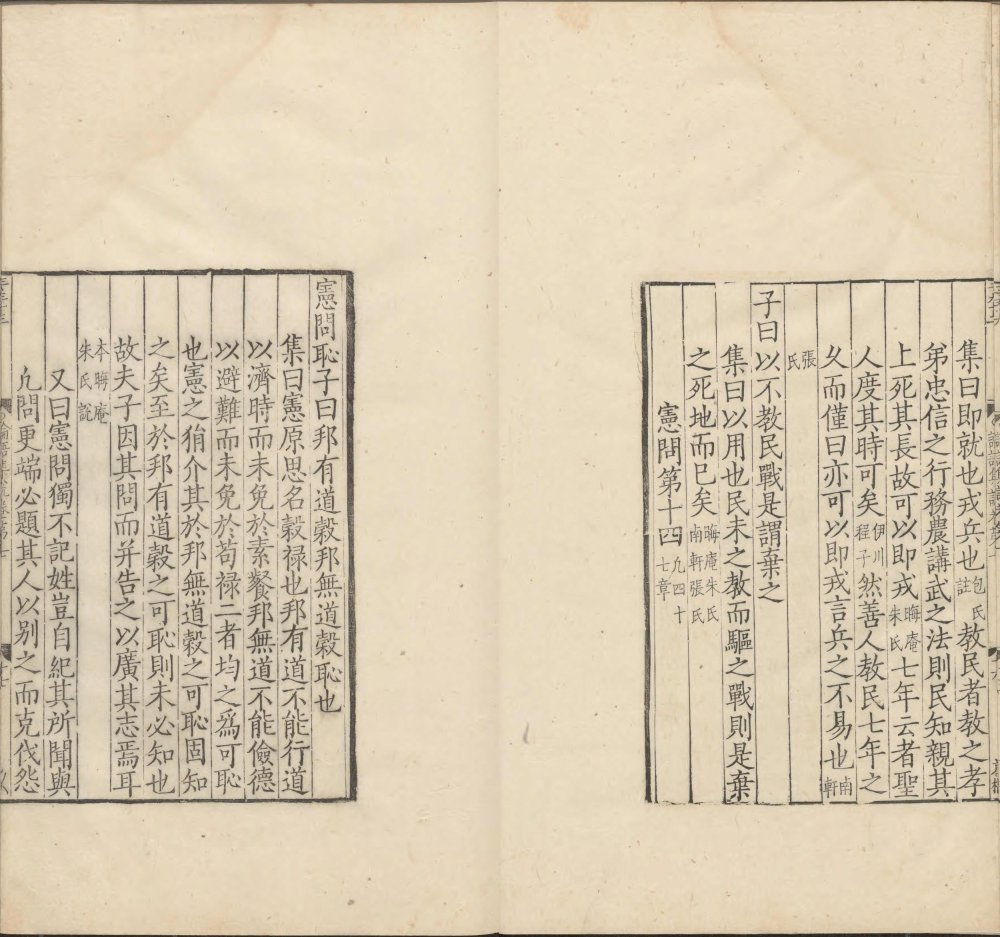 集曰即就也戎兵也包氏註教民者教之孝
弟忠信之行務農講武之法則民知親其
上死其長故可以即戎晦庵朱氏七年云者聖
人度其時可矣伊川程子然善人教民七年之
乆而僅曰亦可以即戎言兵之不易也南軒
張氏
子曰以不教民戰是謂棄之
集曰以用也民未之教而驅之戰則是棄
之死地而已矣晦庵朱氏南軒張氏
憲問第十四凡四十七章
憲問恥子曰邦有道穀邦無道穀恥也
集曰憲原思名穀禄也邦有道不能行道
以濟時而未免於素餐邦無道不能儉德
以避難而未免於苟禄二者均之爲可恥
也憲之狷介其於邦無道穀之可恥固知
之矣至於邦有道穀之可恥則未必知也
故夫子因其問而并告之以廣其志焉耳
本晦庵朱氏說
又曰憲問獨不記姓豈自紀其所聞與
凡問更端必題其人以别之而克伐怨